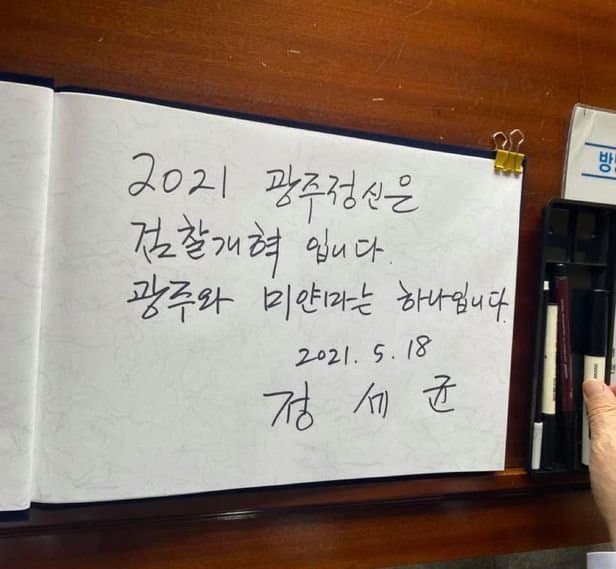 2021 광주정신은
검찰개혁 입니다.
광주와 미얀마는 하나입니다.
2021. 5. 18
정 세 균
방